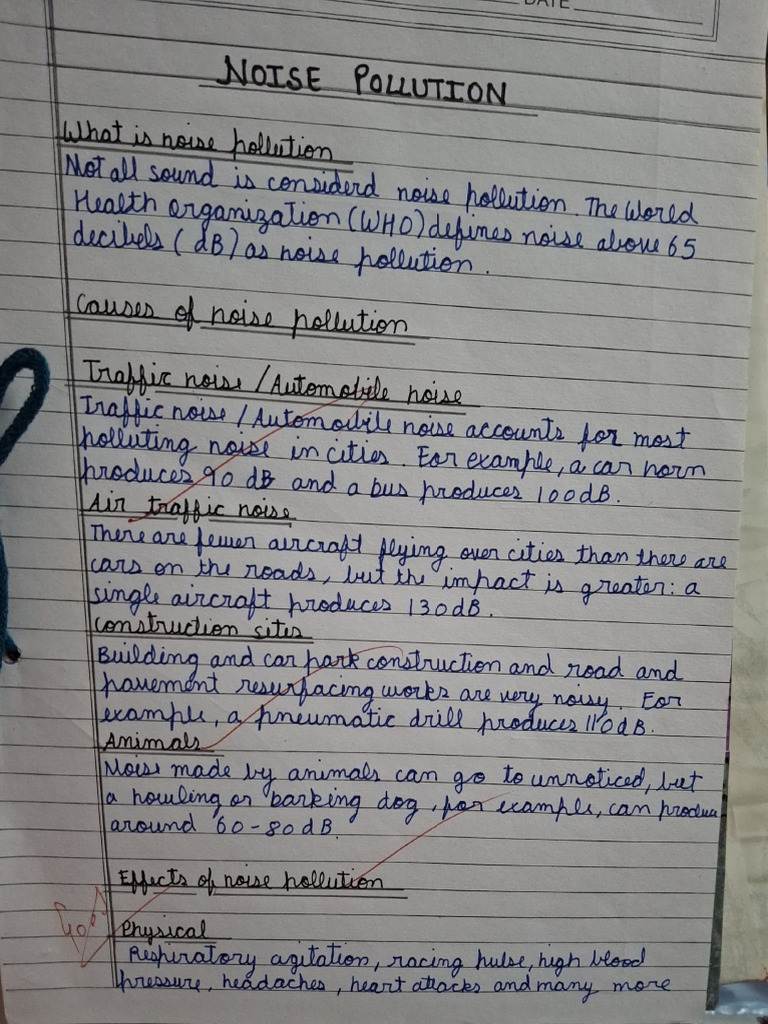 DATE
NOISE POLLUTION
What is noise pollution
Not all sound is considerd noise pollution. The World
Health organization (WHO) defines noise above 65
decibels (dB) as noise pollution.
Causes of noise pollution
Traffic noise / Automobile noise
Traffic noise / Automobile noise accounts for most
polluting noise in cities. For example, a car horn
produces 90 dB and a bus produces 100dB.
Air traffic noise
There are fewer aircraft flying over cities than there are
cars on the roads, but the impact is greater: a
single aircraft produces 130dB.
Construction sites
Building and car park construction and road and
pavement resurfacing works are very noisy. For
example, a pneumatic drill produces 110dB.
Animals
Noise made by animals can go to unnoticed, but
a howling or barking dog, for example, can produce
around 60-80dB.
Effects of noise pollution
Physical
Respiratory agitation, racing pulse, high blood
pressure, headaches, heart attacks and many more